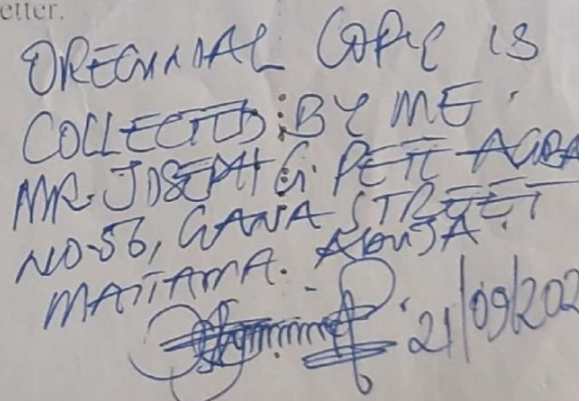 etter.
OREGINAL COPY IS
COLLECTED BY ME.
MR. JOSEPH G. PETE AGBA
NO-56, GANA STREET
MAITAMA. ABUJA.
21/09/202